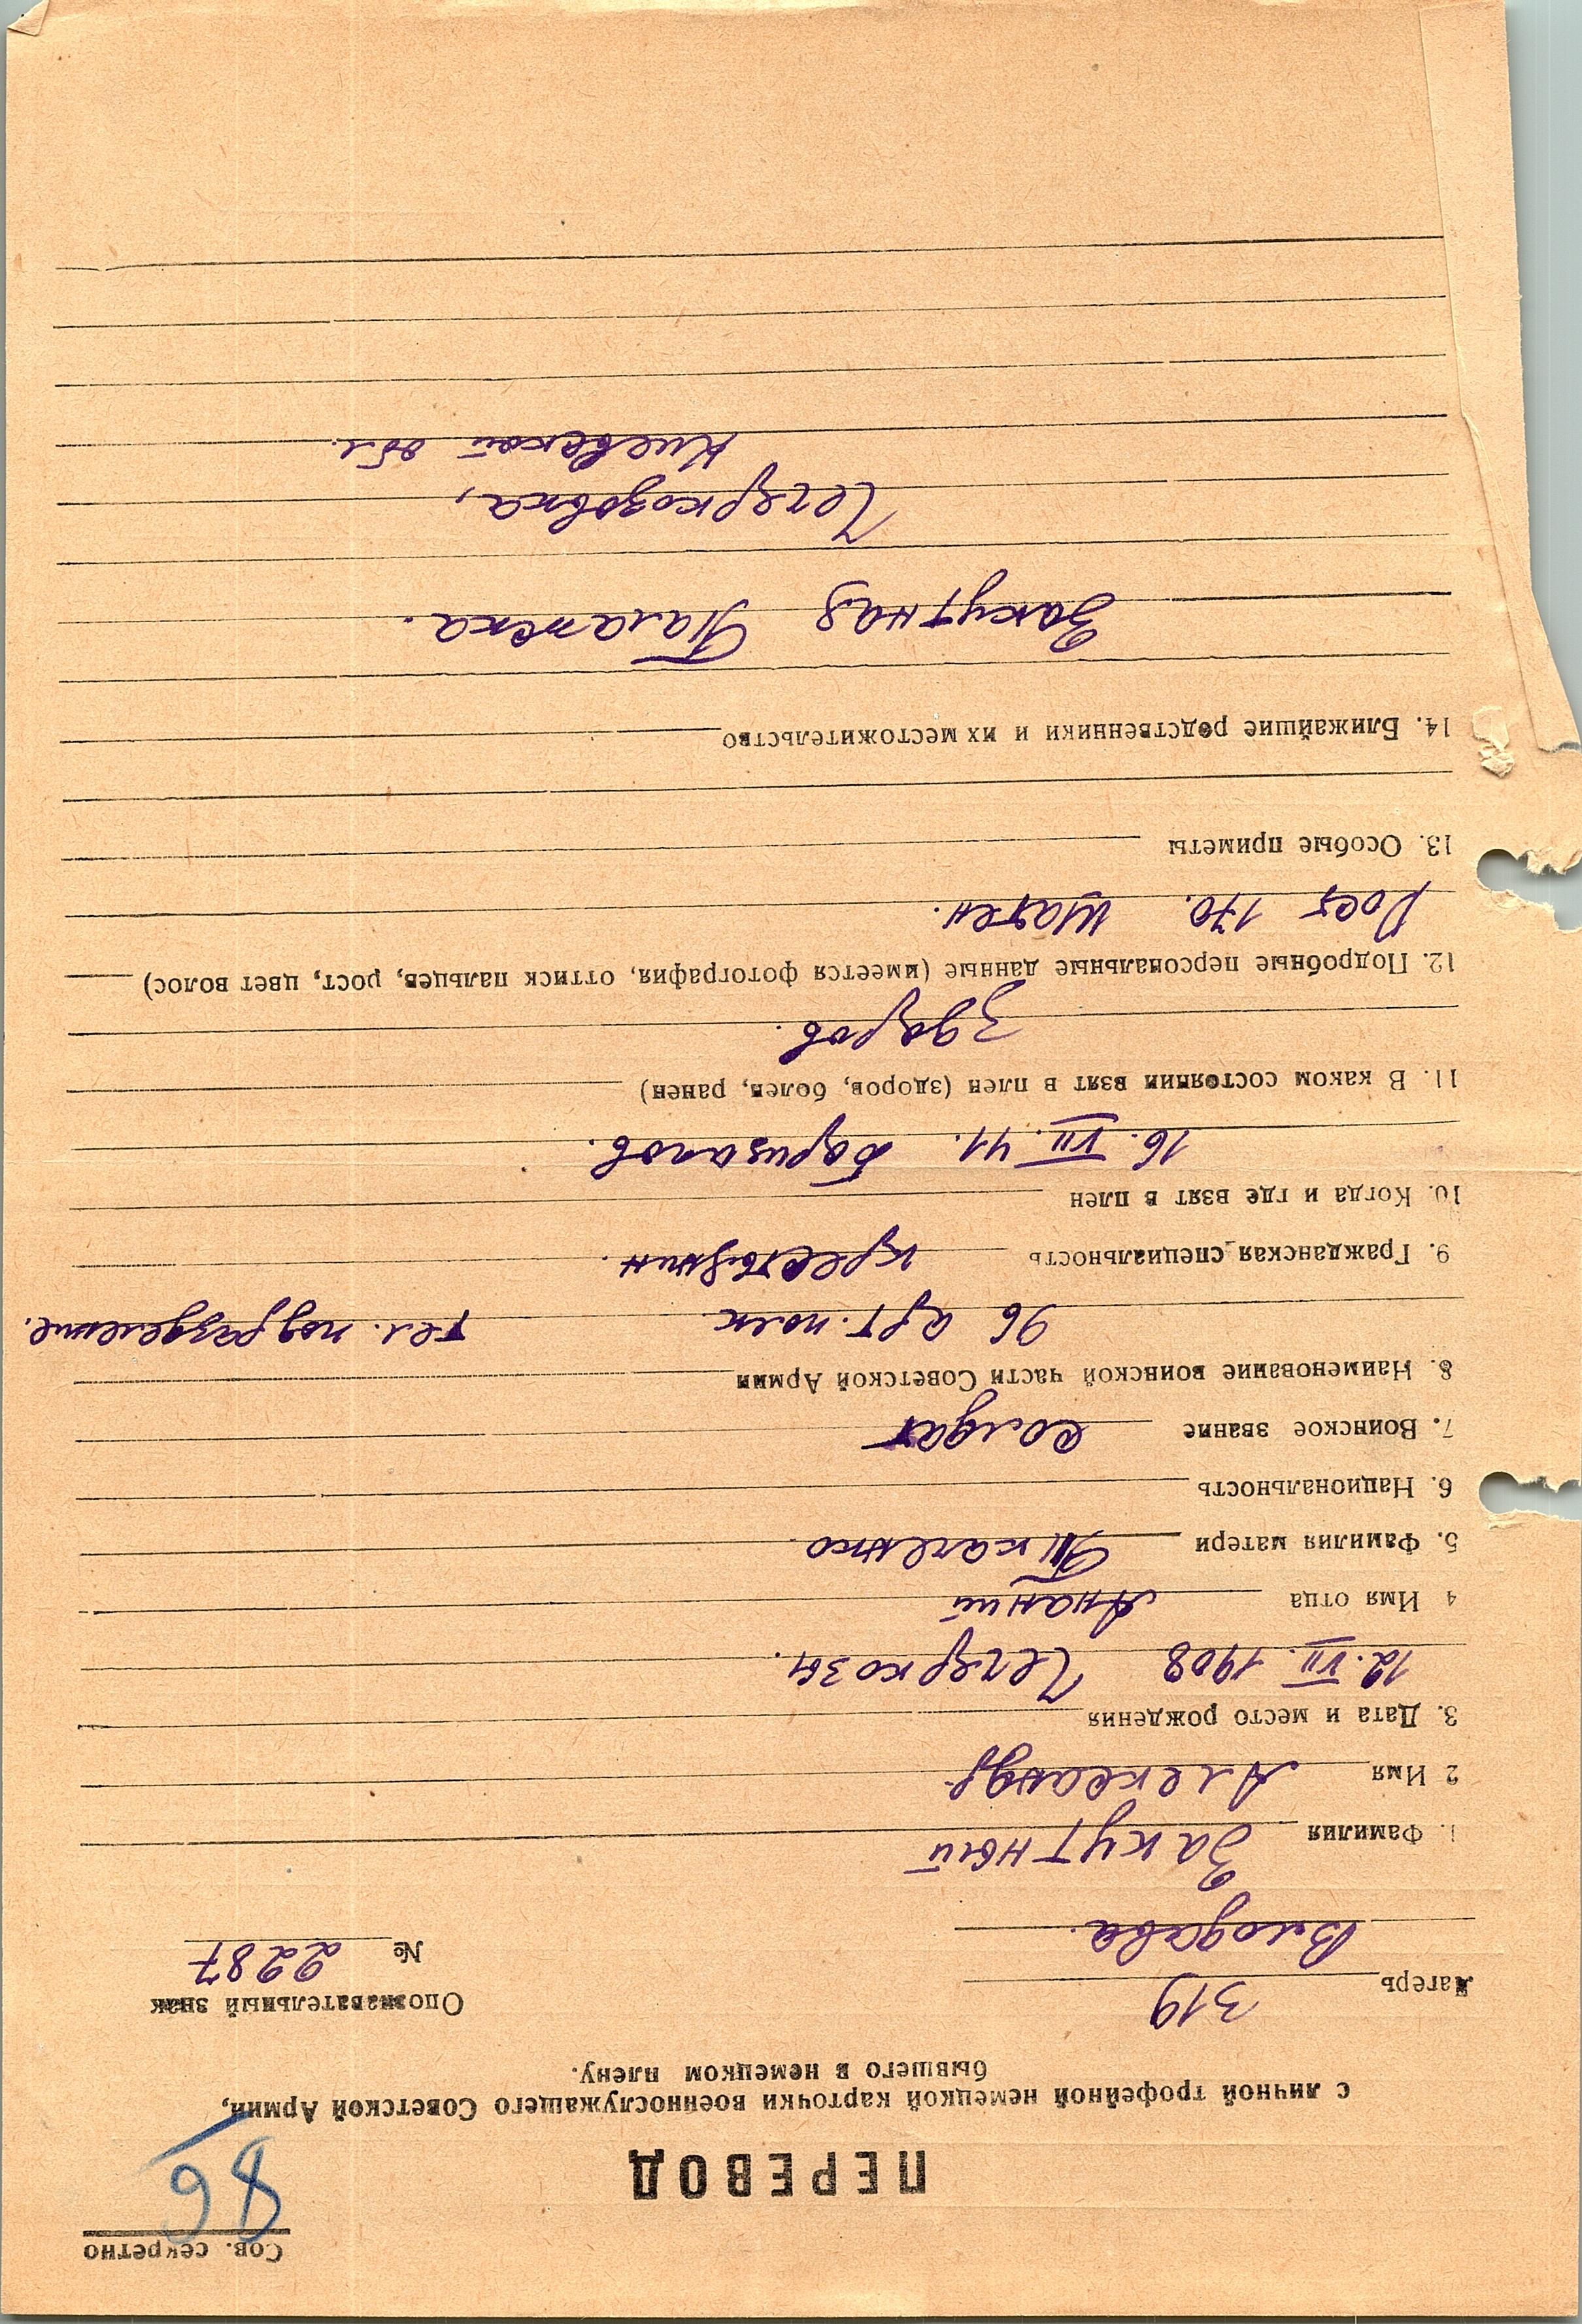 Сов. секретно
86
ПЕРЕВОД
с личной трофейной немецкой карточки военнослужащего Советской Армии,
бывшего в немецком плену.
Лагерь 319
Опознавательный знак
Влодава.
№ 2287
1. Фамилия Закутный
2 Имя Александр.
3. Дата и место рождения
12. VII. 1908 Печеркозы.
4 Имя отца Ананий
5. Фамилия матери Ткаченко.
6. Национальность
7. Воинское звание солдат
8. Наименование воинской части Советской Армии
96 арт. полк. тел. подразделение.
9. Гражданская специальность крестьянин.
10. Когда и где взят в плен
16. VII. 41.
11. В каком состоянии взят в плен (здоров, болен, ранен)
здоров.
12. Подробные персональные данные (имеется фотография, оттиск пальцев, рост, цвет волос)
Рост 170. шатен.
13. Особые приметы
14. Ближайшие родственники и их местожительство
Закутная Палажка.
Киевской обл.